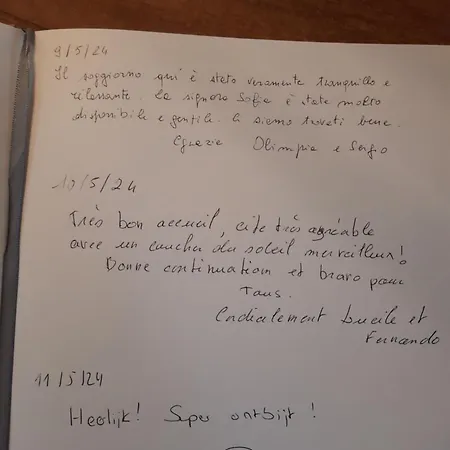 9/5/24
Il soggiorno qui è stato veramente tranquillo e
rilassante. La signora Sofia è stata molto
disponibile e gentile. Ci siamo trovati bene.
Grazie Olimpia e Sergio
10/5/24
Très bon accueil, cite très agréable
avec un coucher du soleil merveilleux!
Bonne continuation et bravo pour
Tous.
Cordialement Lucile et
Fernando
11/5/24
Heerlijk! Super ontbijt!